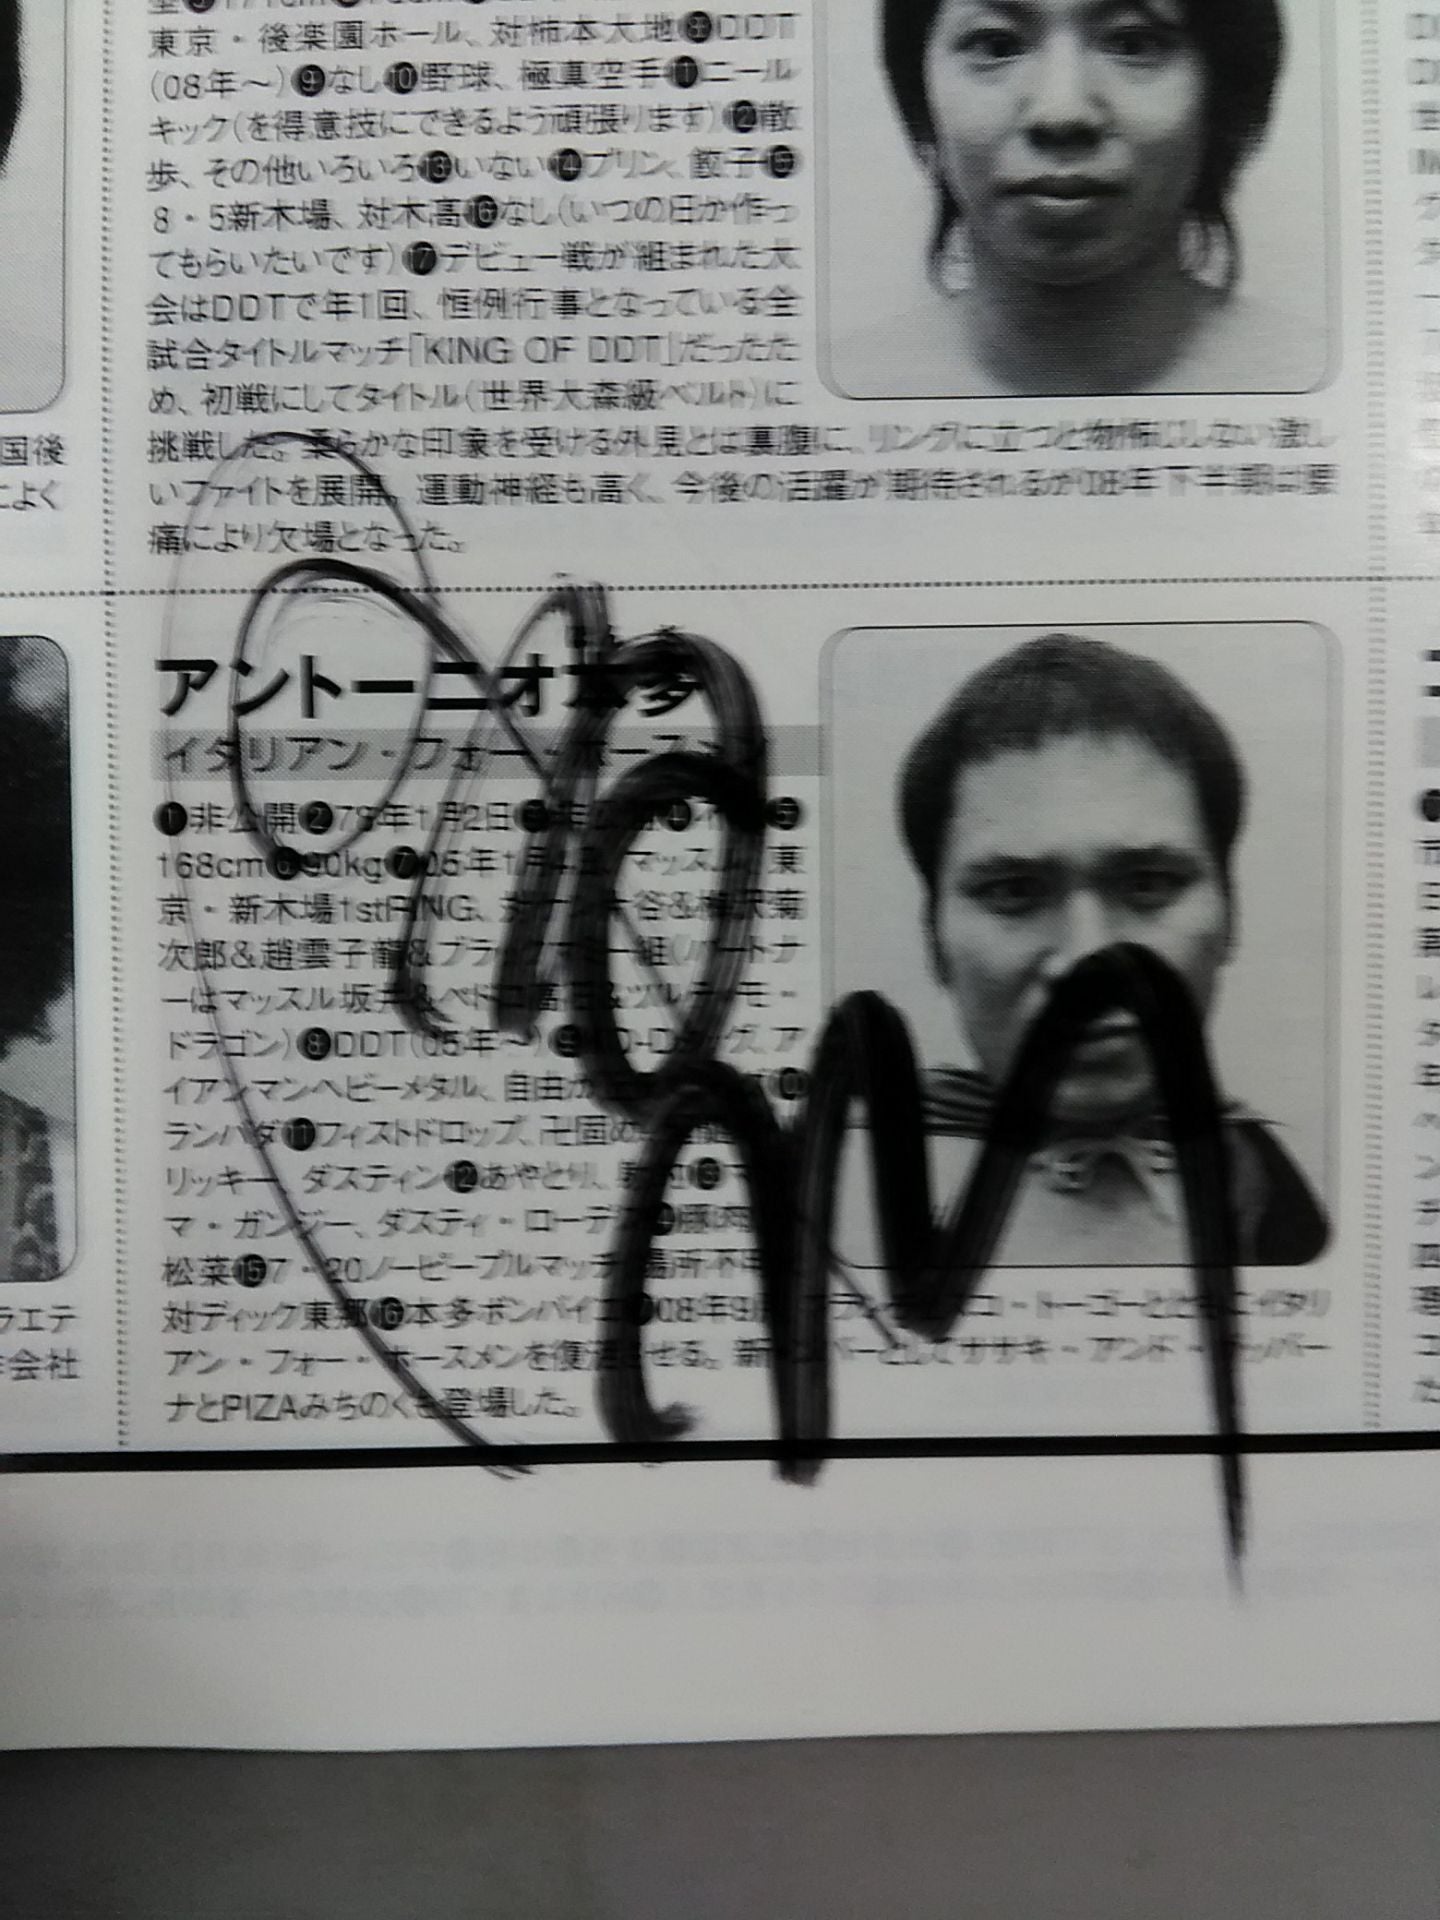 東京・後楽園ホール、対柿本大地❽DDT
(08年〜)❾なし❿野球、極真空手⓫ニール
キック(を得意技にできるよう頑張ります)⓬散
歩、その他いろいろ⓭いない⓮プリン、餃子⓯
8・5新木場、対木高⓰なし(いつの日か作っ
てもらいたいです)⓱デビュー戦が組まれた大
会はDDTで年1回、恒例行事となっている全
試合タイトルマッチ「KING OF DDT」だったた
め、初戦にしてタイトル(世界大森級ベルト)に
挑戦した。柔らかな印象を受ける外見とは裏腹に、リングに立つと物怖じしない激し
いファイトを展開。運動神経も高く、今後の活躍が期待されるが08年下半期は腰
痛により欠場となった。
国後
によく
アントーニオ本多
イタリアン・フォー・ホースメン
❶非公開❷78年1月2日❸非公開❹ ❺
168cm❻90kg❼05年1月4日、マッスル、東
京・新木場1stRING、対 谷&梅沢菊
次郎&趙雲子龍&ブラックマミー組(パートナ
ーはマッスル坂井&ペドロ高石&ツルティモ・
ドラゴン)❽DDT(05年〜)❾ ア
イアンマンヘビーメタル、自由が ❿
ランバダ⓫フィストドロップ、卍固め
リッキー、ダスティン⓬あやとり、 ⓭マ
マ・ガンジー、ダスティ・ローデス⓮豚肉
松菜⓯7・20ノーピープルマッチ 場所不
対ディック東郷⓰本多ボンバイエ⓱08年9月 フランチェスコ・トーゴーとともにイタリ
アン・フォー・ホースメンを復活させる。新メンバーとしてササキ・アンド・ナッパー
ナとPIZAみちのくも登場した。
ラエテ
会社